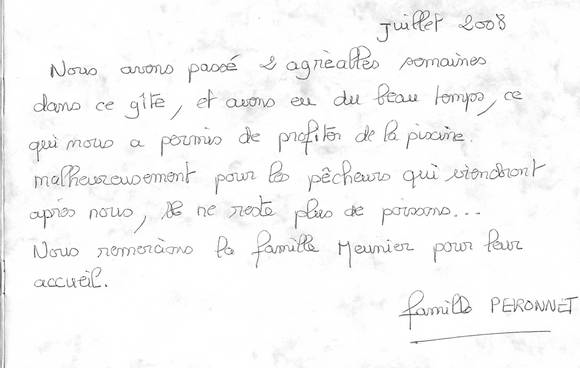 Juillet 2008
Nous avons passé 2 agréables semaines
dans ce gîte, et avons eu du beau temps, ce
qui nous a permis de profiter de la piscine.
malheureusement pour les pêcheurs qui viendront
après nous, il ne reste plus de poissons...
Nous remercions la famille Meunier pour leur
accueil.
famille PERONNET